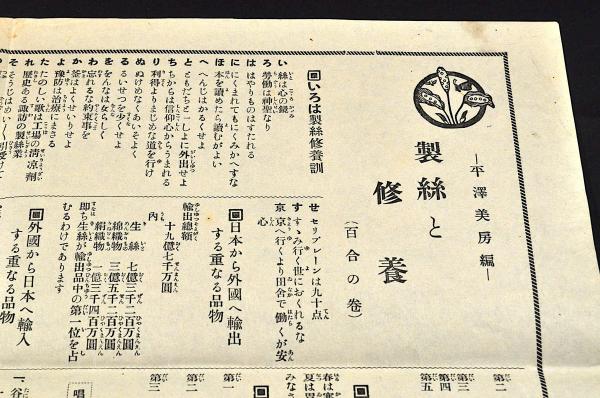 平澤美房編
製絲と
修養
(百合の卷)
いろは製絲修養訓
い 絲は心の鏡
ろ 勞働は神聖なり
は はやりものはすたれる
に にくまれてもにくみかへすな
ほ 本を讀めたら讀むがよい
へ へんじはかるくせよ
と ともだちと一しよに外出せよ
ち ちからは信仰心からうまれる
り 利得よりまじめな道を行け
ぬ ぬけめなくあいそよく
る るいせつを少くせよ
を をんなは女らしく
わ 忘れるな約束事を
か 釜はよくせいりせよ
よ 豫防は治療にまさる
た たのしい歌は工場の淸凉劑
れ 歷史ある諏訪の製絲業
せ セリプレーンは九十点
す すゝみ行く世におくれるな
京 京へ行くより田舍で働くが安心
日本から外國へ輸出
する重なる品物
輸出總額
十九億七千万圓
內
生絲 七億三千二百万圓
綿織物 三億五千二百万圓
絹織物 一億三千四百万圓
卽ち生絲が輸出品中の第一位を占
むるわけであります
外國から日本へ輸入
する重なる品物
第二
第三
第四
第五
第一
第二
第三